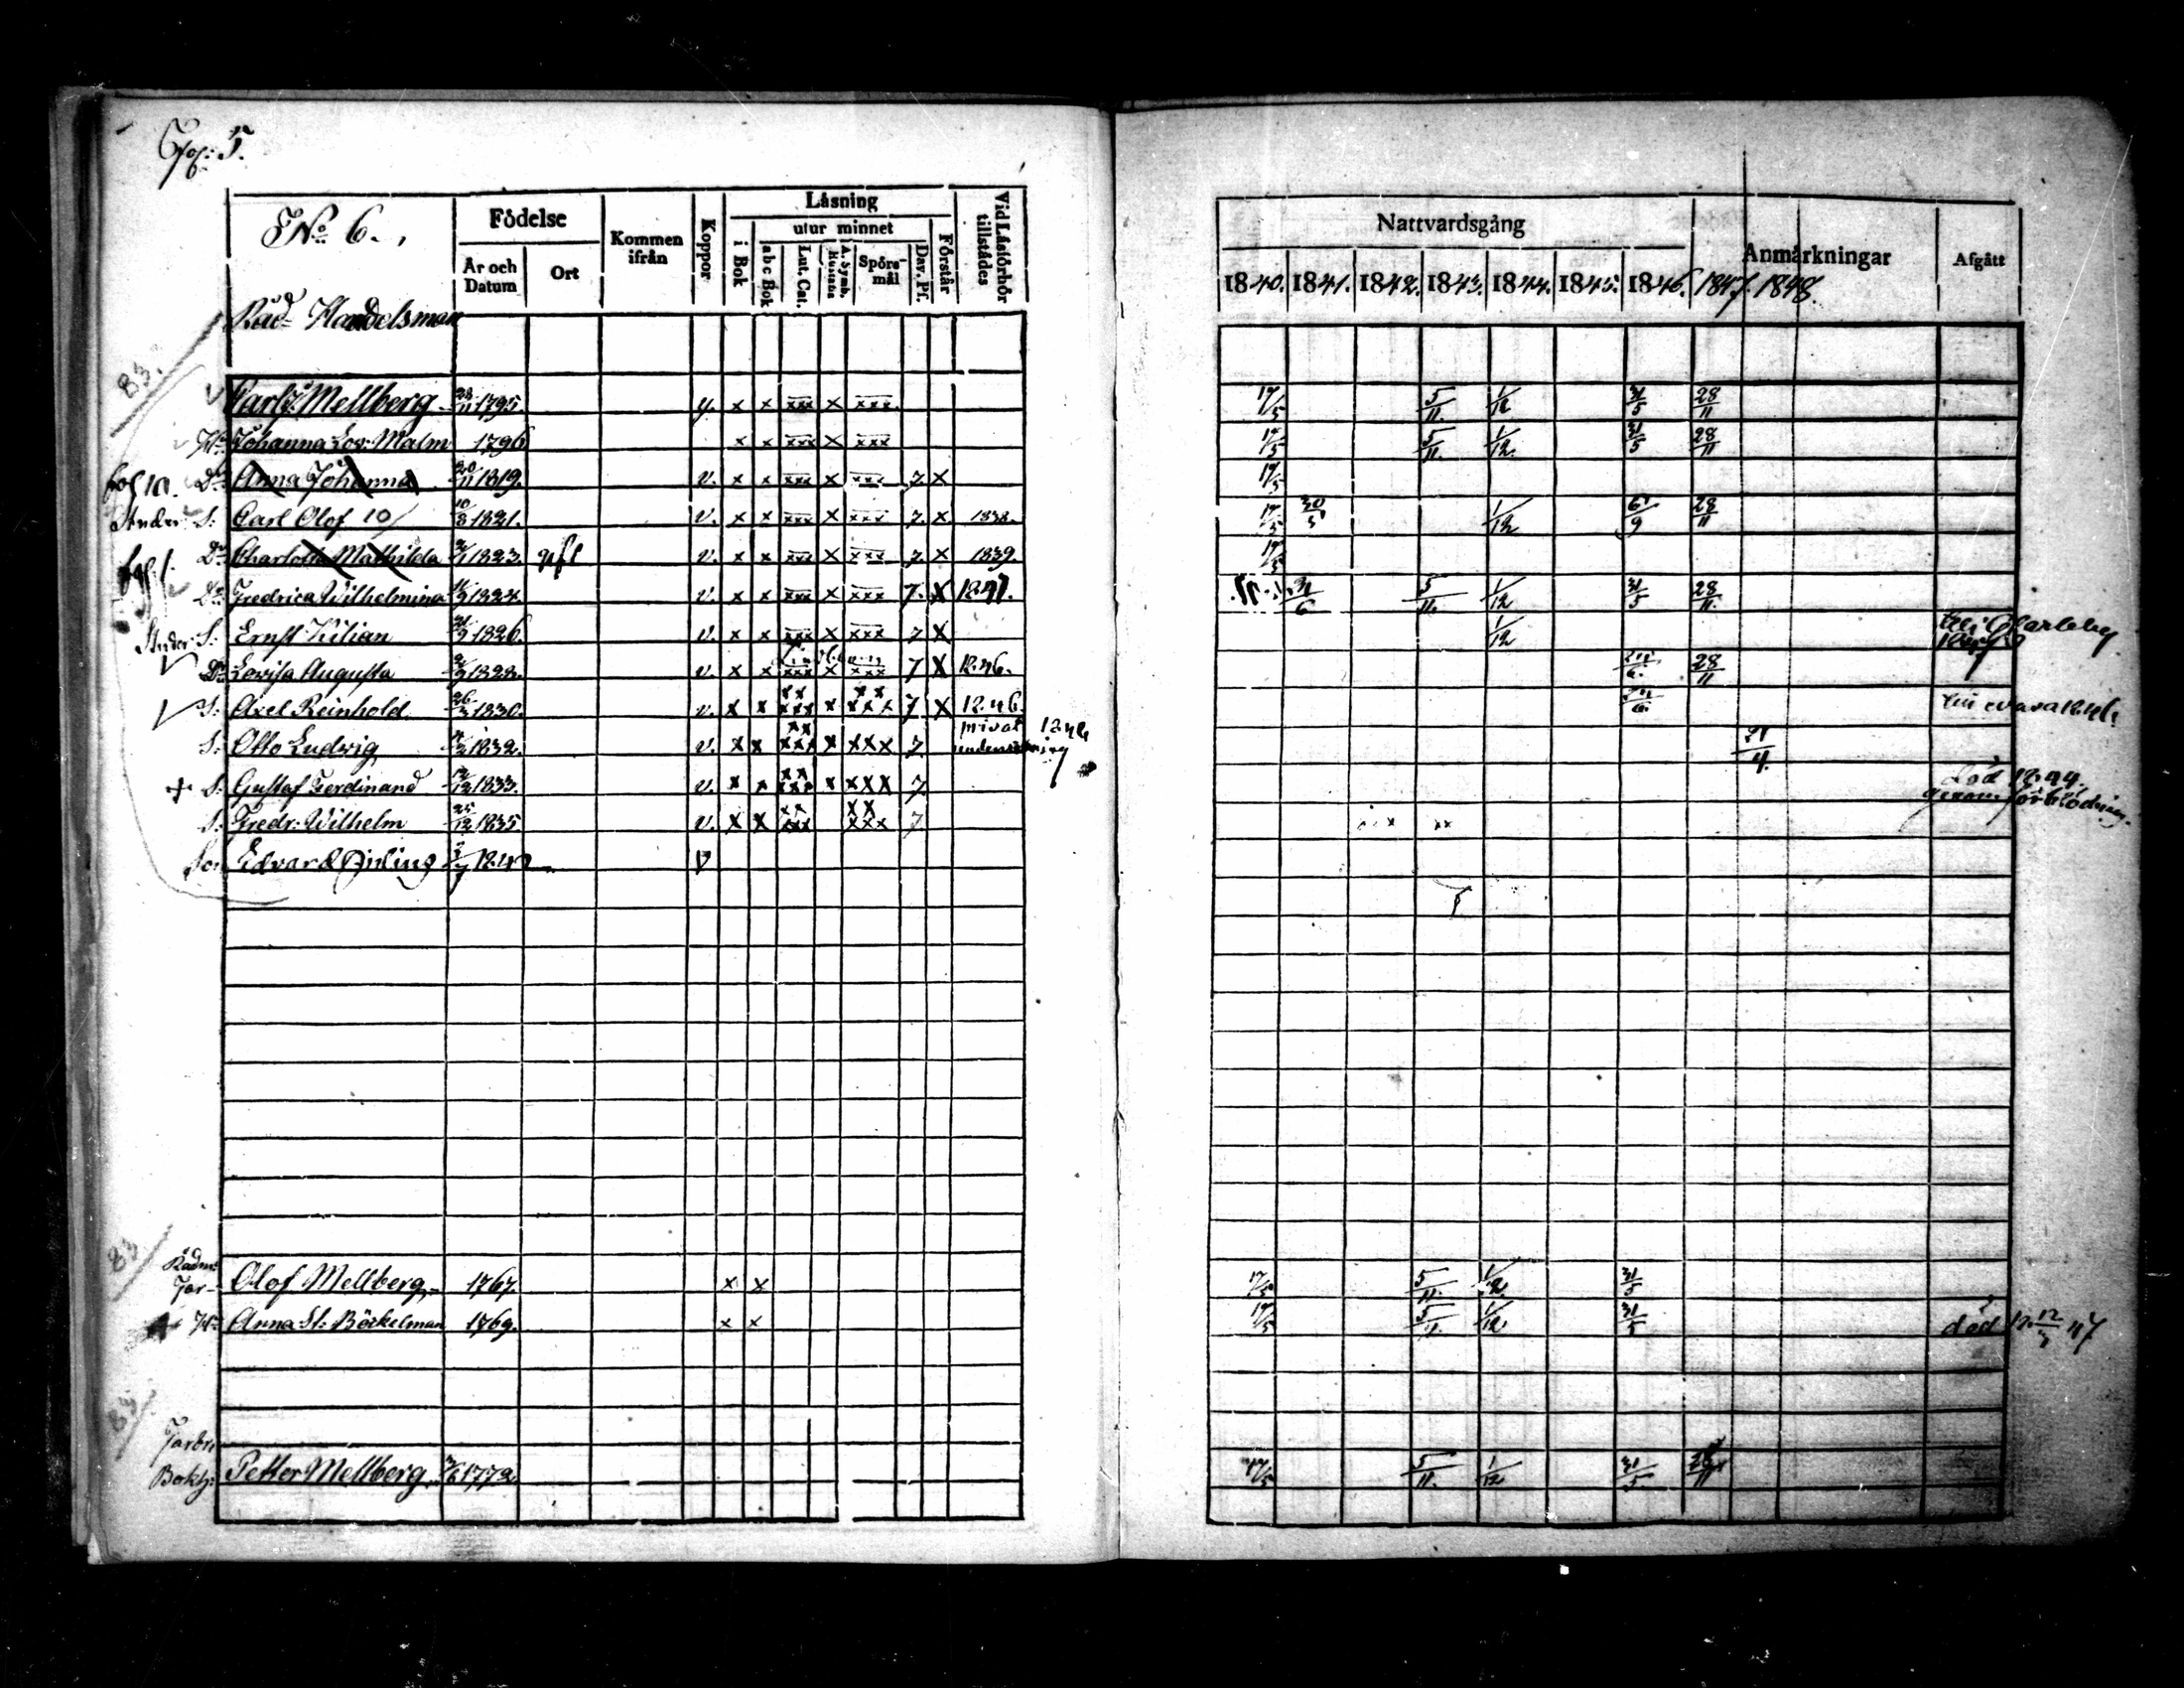 Fol: 5.
No 6.
Födelse
År och Datum
Ort
Kommen ifrån
Koppor
Läsning
i Bok
utur minnet
abc Bok
Lut. Cat.
A. Symb. Hustafla
Spörs-mål
Dav. Ps.
Förstår
Vid Läsförhör tillstådes
Nattvardsgång
1840. 1841. 1842. 1843. 1844. 1845. 1846. 1847. 1848.
Anmärkningar
Afgått
Råd- Handelsman
83.
Carl J. Mellberg 28/11 1795. v. x x xxx x xxx 17/5 5/11 1/12 31/5 28/11
H: Johanna Lov: Malm 1796 x x xxx x xxx 17/5 5/11 1/12 31/5 28/11
fol 10. Dr Anna Johanna 20/11 1819. v. x x xxx x xxx 7 x 17/5
Studer: S: Carl Olof 10/8 1821. v. x x xxx x xxx 7. x 1838. 17/5 30/5 1/12 6/9 28/11
Dr Charlotta Mathilda 1823. gift v. x x xxx x xxx 7 x 1839. 17/5
Dr Fredrica Wilhelmina 1824. v. x x xxx x xxx 7. x 1841. 5/11 1/12 31/5 28/11
Studer: S: Ernst Kilian 1826. v. x x xxx x xxx 7 x 1/12
Dr Lovisa Augusta 1828. v. x x xxx x xxx 7 x 1846. 28/11
S: Axel Reinhold 26/3 1830. v. x x xxx x xxx 7 x 1846.
S: Otto Ludvig 1832. v. x x xxx x xxx 7 privat 1848
+ S: Gustaf Ferdinand 1833. v. x x xxx x xxx 7. död 1844 genom förblödning.
S: Fredr: Wilhelm 25/12 1835 v. x x xxx xxx 7
Son Edvard Julius 1840 v
83
Rådm:
Far- Olof Mellberg 1767. x x 17/5 5/11 1/12 31/5
H: Anna St: Böckelman 1769. x x 17/5 5/11 1/12 31/5 död 47
83.
Farbr:
Bokh: Petter Mellberg 1772. 17/5 5/11 1/12 31/5